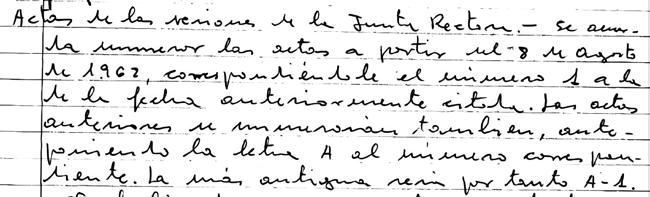 Actas de las sesiones de la Junta Rectora.- Se acuer-
da numerar las actas a partir del 8 de agosto
de 1962, correspondiéndole el número 1 a la
de la fecha anteriormente citada. Las actas
anteriores se numerarán tambien, ante-
poniendo la letra A al número correspon-
diente. La más antigua sería por tanto A-1.